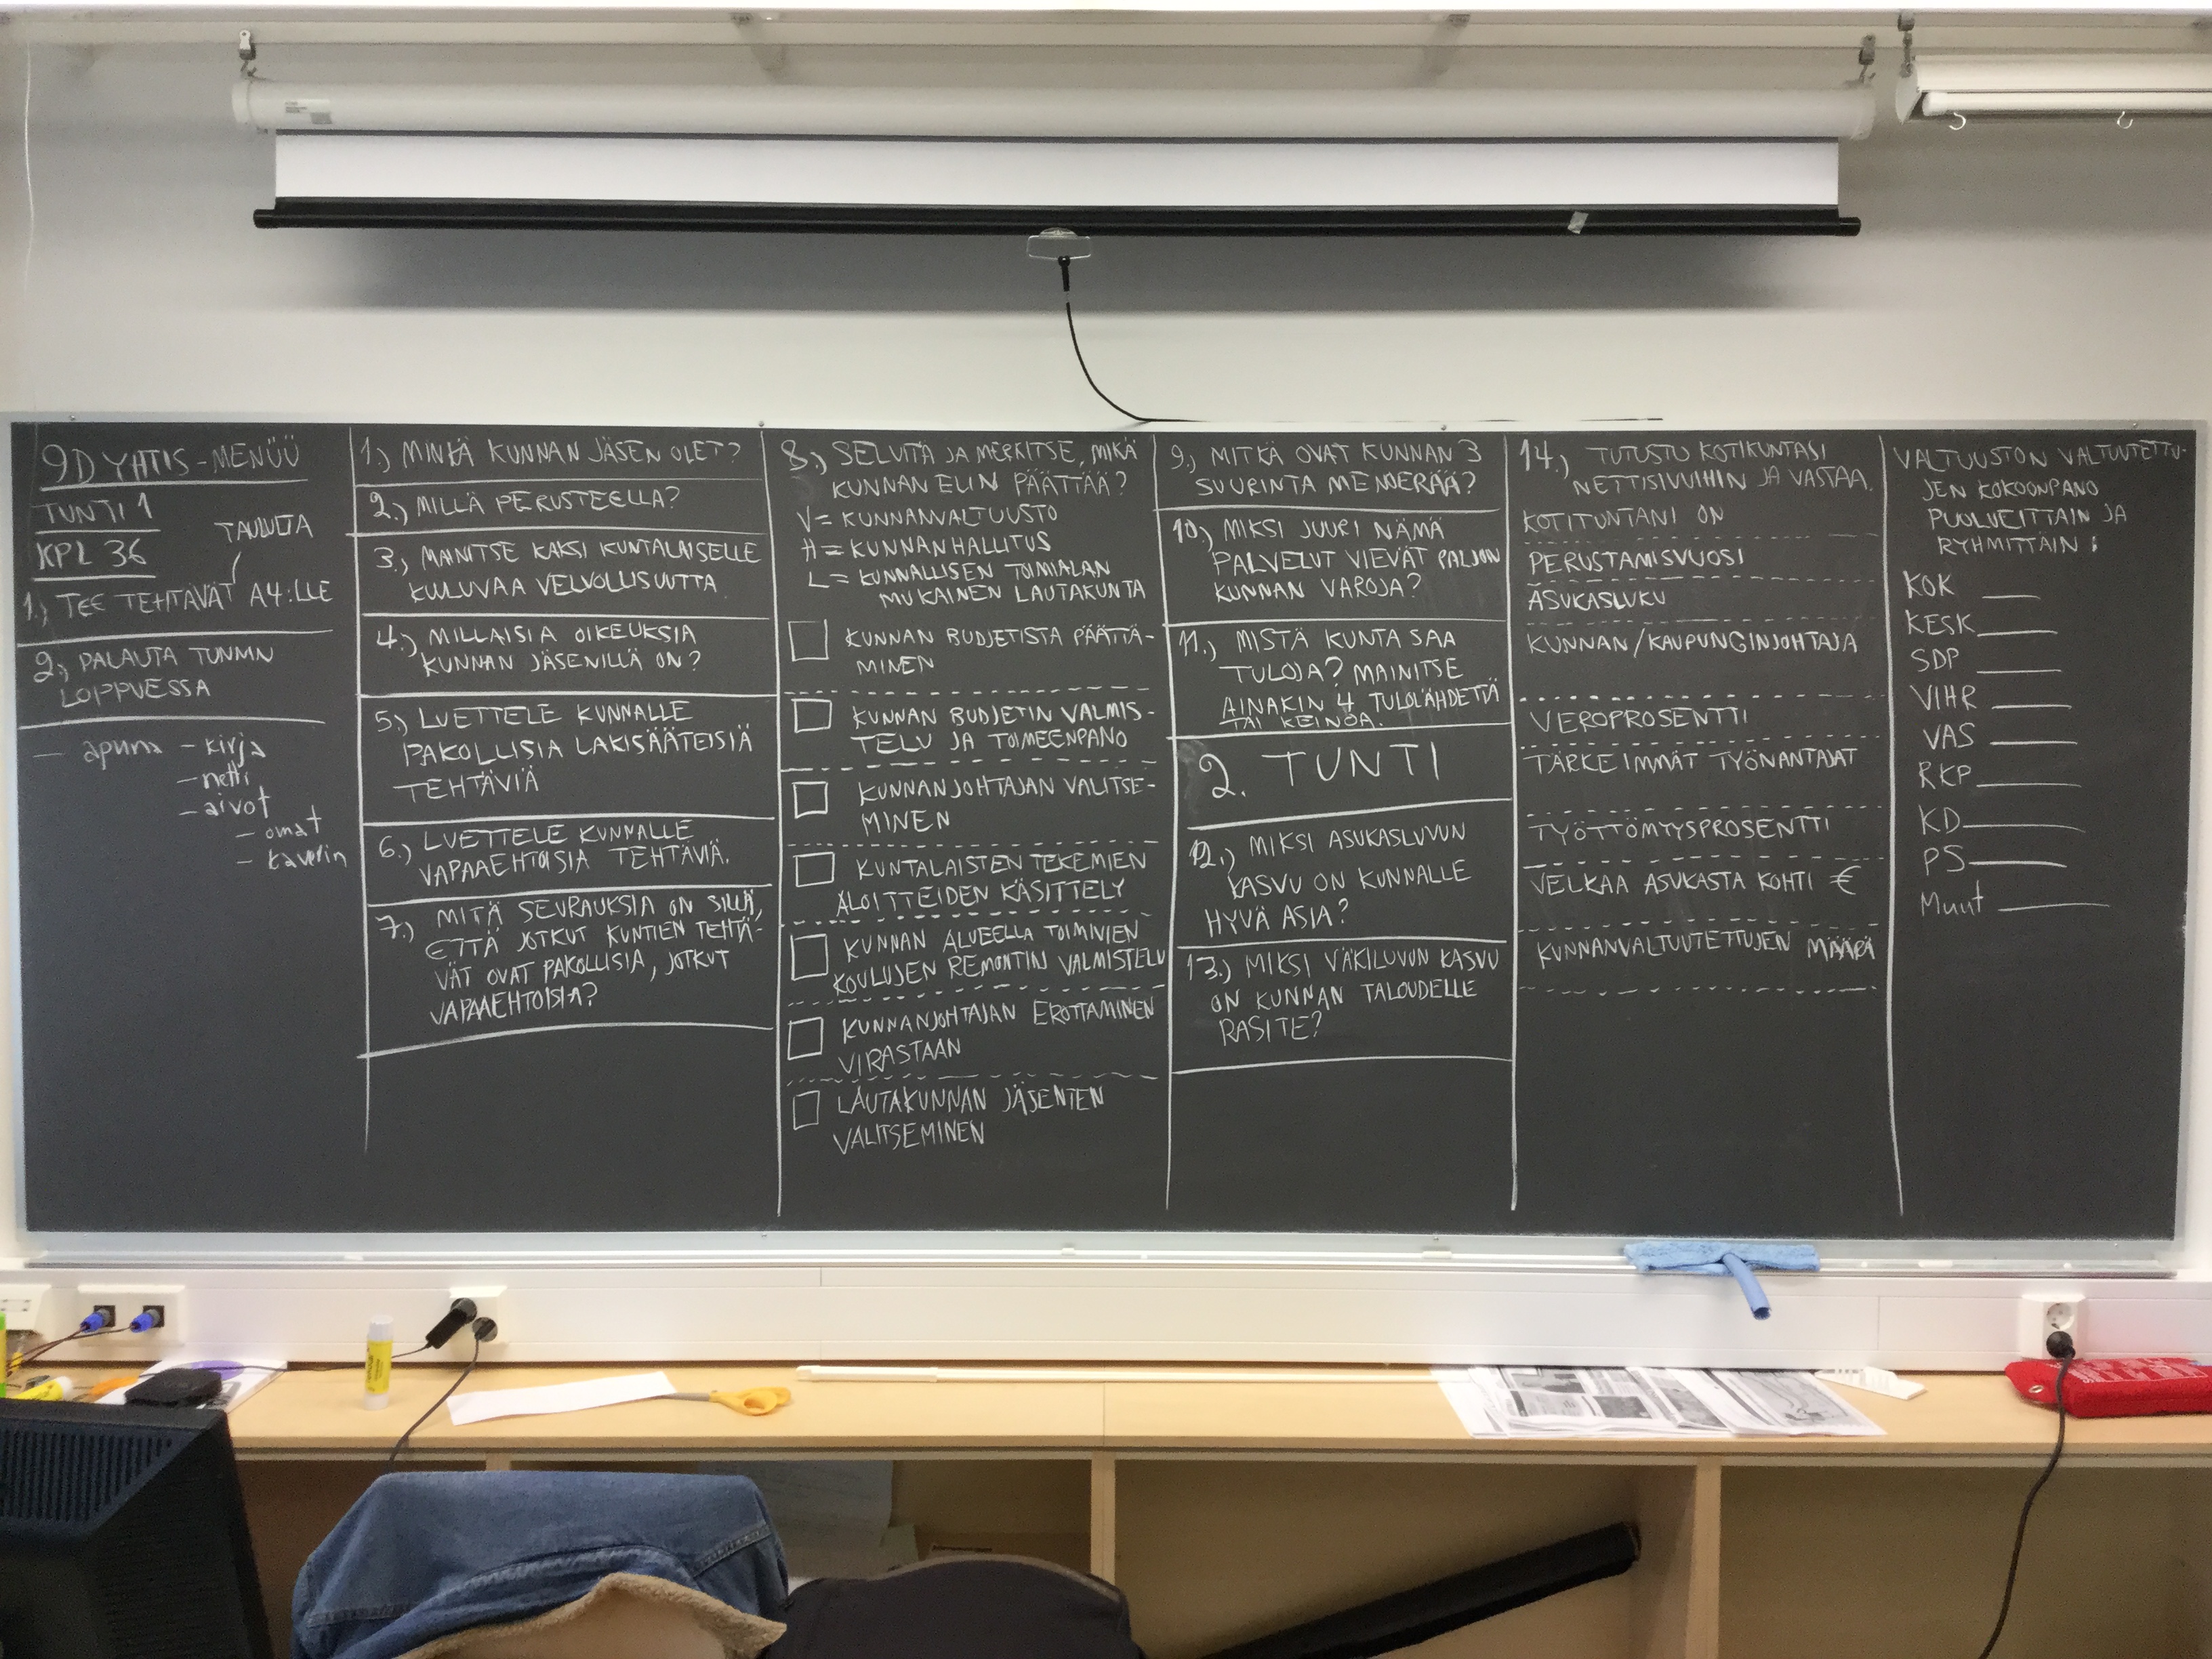 9D YHTIS-MENÜÜ
TUNTI 1
KPL 36
TAULULTA
1.) TEE TEHTÄVÄT A4:LLE
2.) PALAUTA TUNNIN
LOPPUESSA
- apuna - kirja
- netti
- aivot
- omat
- kaverin
1.) MINKÄ KUNNAN JÄSEN OLET?
2.) MILLÄ PERUSTEELLA?
3.) MAINITSE KAKSI KUNTALAISELLE
KULUVAA VELVOLLISUUTTA
4.) MILLAISIA OIKEUKSIA
KUNNAN JÄSENILLÄ ON?
5.) LUETTELE KUNNALLE
PAKOLLISIA LAKISÄÄTEISIÄ
TEHTÄVIÄ
6.) LUETTELE KUNNALLE
VAPAAEHTOISIA TEHTÄVIÄ.
7.) MITÄ SEURAUKSIA ON SILLÄ,
ETTÄ JOTKUT KUNTIEN TEHTÄ-
VÄT OVAT PAKOLLISIA, JOTKUT
VAPAAEHTOISIA?
8.) SELVITÄ JA MERKITSE, MIKÄ
KUNNAN ELIN PÄÄTTÄÄ?
V = KUNNANVALTUUSTO
H = KUNNANHALLITUS
L = KUNNALLISEN TOIMIALAN
MUKAINEN LAUTAKUNTA
KUNNAN BUDJETISTA PÄÄTTÄ-
MINEN
KUNNAN BUDJETIN VALMIS-
TELU JA TOIMEENPANO
KUNNANJOHTAJAN VALITSE-
MINEN
KUNTALAISTEN TEKEMIEN
ALOITTEIDEN KÄSITTELY
KUNNAN ALUEELLA TOIMIVIEN
KOULUJEN REMONTIN VALMISTELU
KUNNANJOHTAJAN EROTTAMINEN
VIRASTAAN
LAUTAKUNNAN JÄSENTEN
VALITSEMINEN
9.) MITKÄ OVAT KUNNAN 3
SUURINTA MENOERÄÄ?
10.) MIKSI JUURI NÄMÄ
PALVELUT VIEVÄT PALJON
KUNNAN VAROJA?
11.) MISTÄ KUNTA SAA
TULOJA? MAINITSE
AINAKIN 4 TULOLÄHDETTÄ
TAI KEINOA.
2. TUNTI
12.) MIKSI ASUKASLUVUN
KASVU ON KUNNALLE
HYVÄ ASIA?
13.) MIKSI VÄKILUVUN KASVU
ON KUNNAN TALOUDELLE
RASITE?
14.) TUTUSTU KOTIKUNTASI
NETTISIVUIHIN JA VASTAA.
KOTIKUNTANI ON
PERUSTAMISVUOSI
ASUKASLUKU
KUNNAN/KAUPUNGINJOHTAJA
VEROPROSENTTI
TÄRKEIMMÄT TYÖNANTAJAT
TYÖTTÖMYYSPROSENTTI
VELKAA ASUKASTA KOHTI €
KUNNANVALTUUTETTUJEN MÄÄRÄ
VALTUUSTON VALTUUTETTU-
JEN KOKOONPANO
PUOLUEITTAIN JA
RYHMITTÄIN:
KOK
KESK
SDP
VIHR
VAS
RKP
KD
PS
Muut